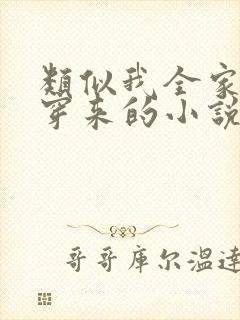 類似我全家
穿来的小說
哥哥库尔温達